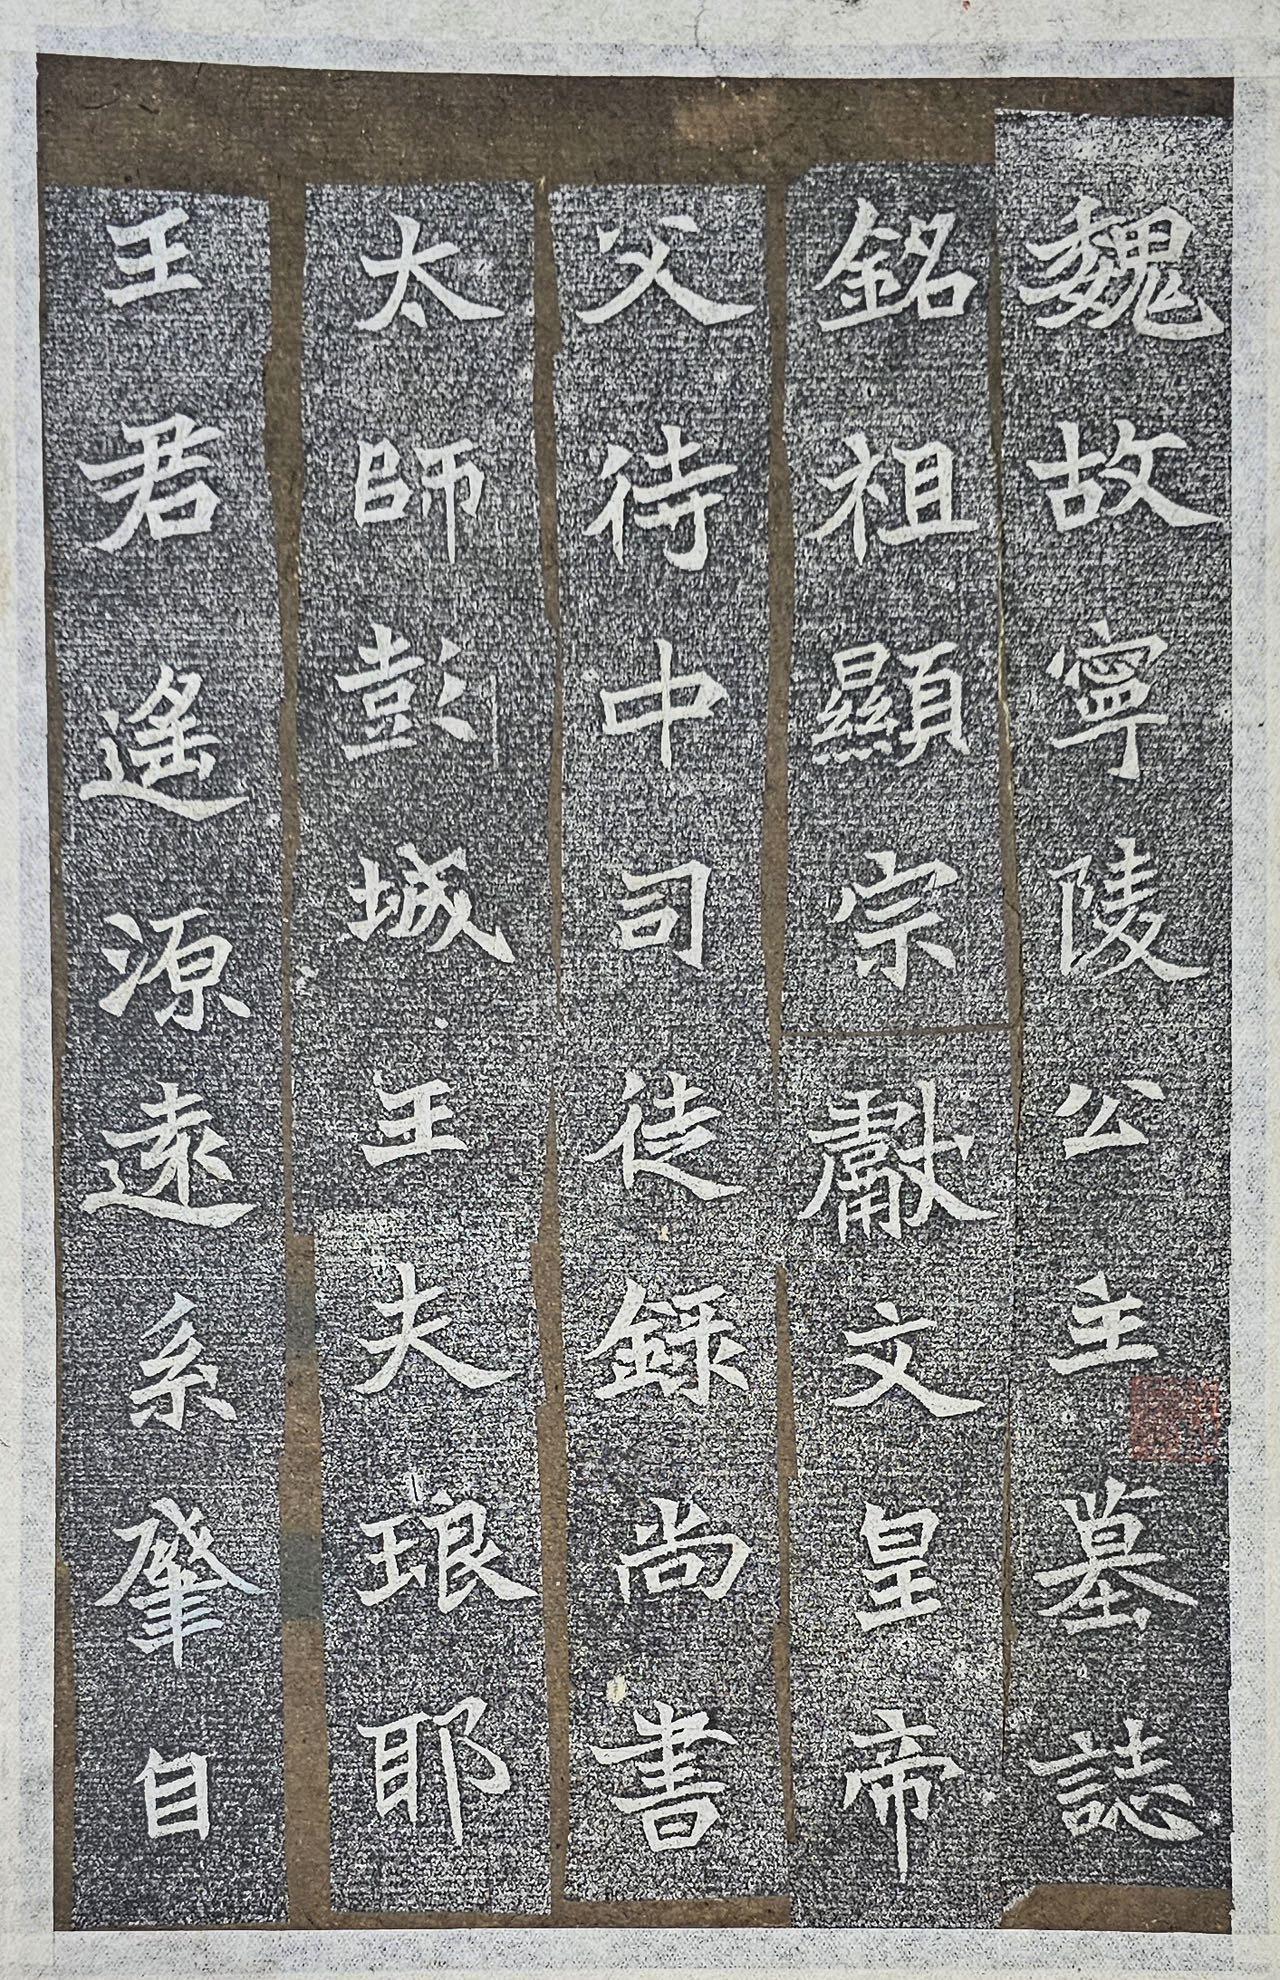 魏故寧陵公主墓誌
銘祖顯宗獻文皇帝
父侍中司徒錄尚書
太師彭城王夫琅耶
王君遙源遠系肇自